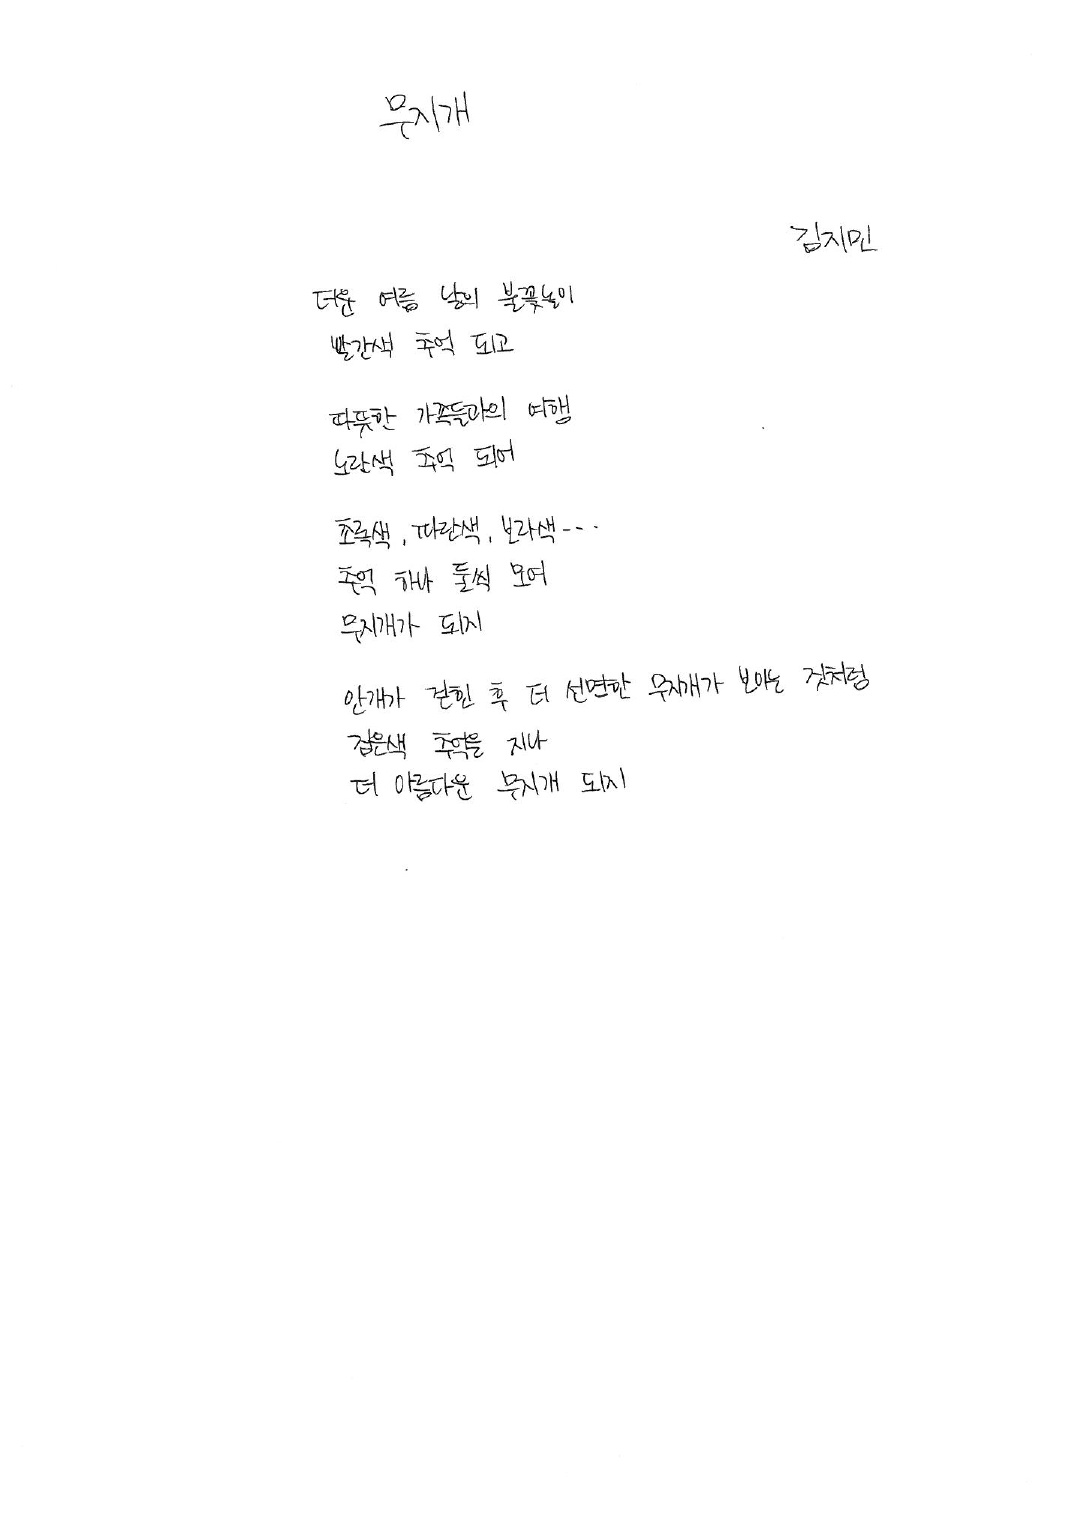 무지개
김지민
더운 여름 날의 불꽃놀이
빨간색 추억 되고
따뜻한 가족들과의 여행
노란색 추억 되어
초록색, 파란색, 보라색---
추억 하나 둘씩 모여
무지개가 되지
안개가 걷힌 후 더 선명한 무지개가 보이는 것처럼
검은색 추억을 지나
더 아름다운 무지개 되지